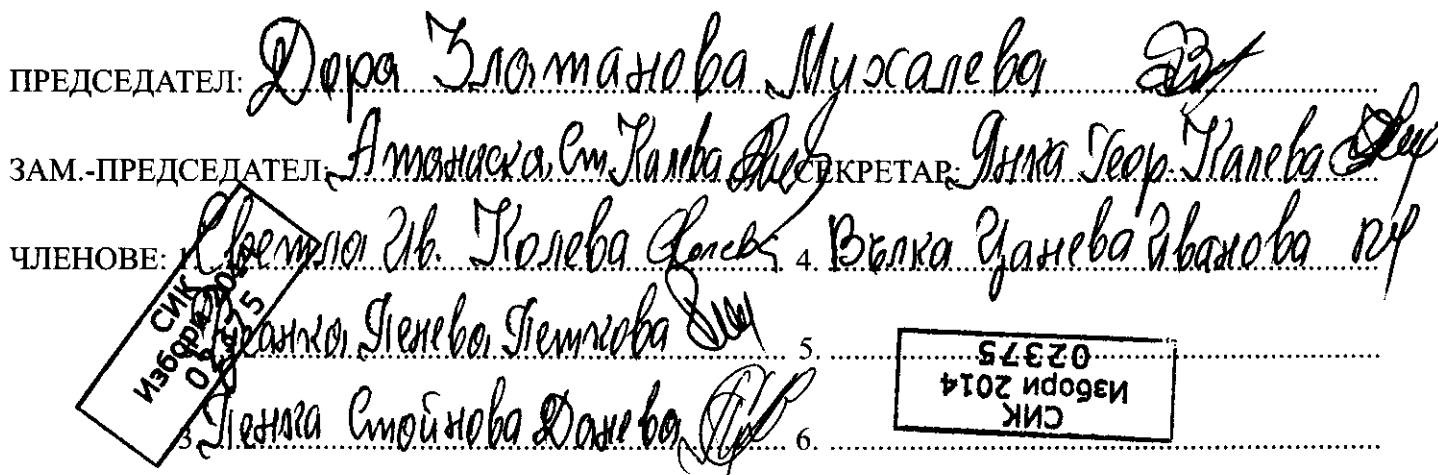 ПРЕДСЕДАТЕЛ: Дора Златанова Михалева
ЗАМ.-ПРЕДСЕДАТЕЛ: Атанаска Ст. Калева СЕКРЕТАР: Янка Геор. Калева
ЧЛЕНОВЕ: 1. Светла Ив. Колева 4. Вълка Цанева Иванова
Пенева Петкова 5.
3. Пенка Стойнова Данева 6.
СИК
Избори 2014
02375
СИК
Избори 2014
02375